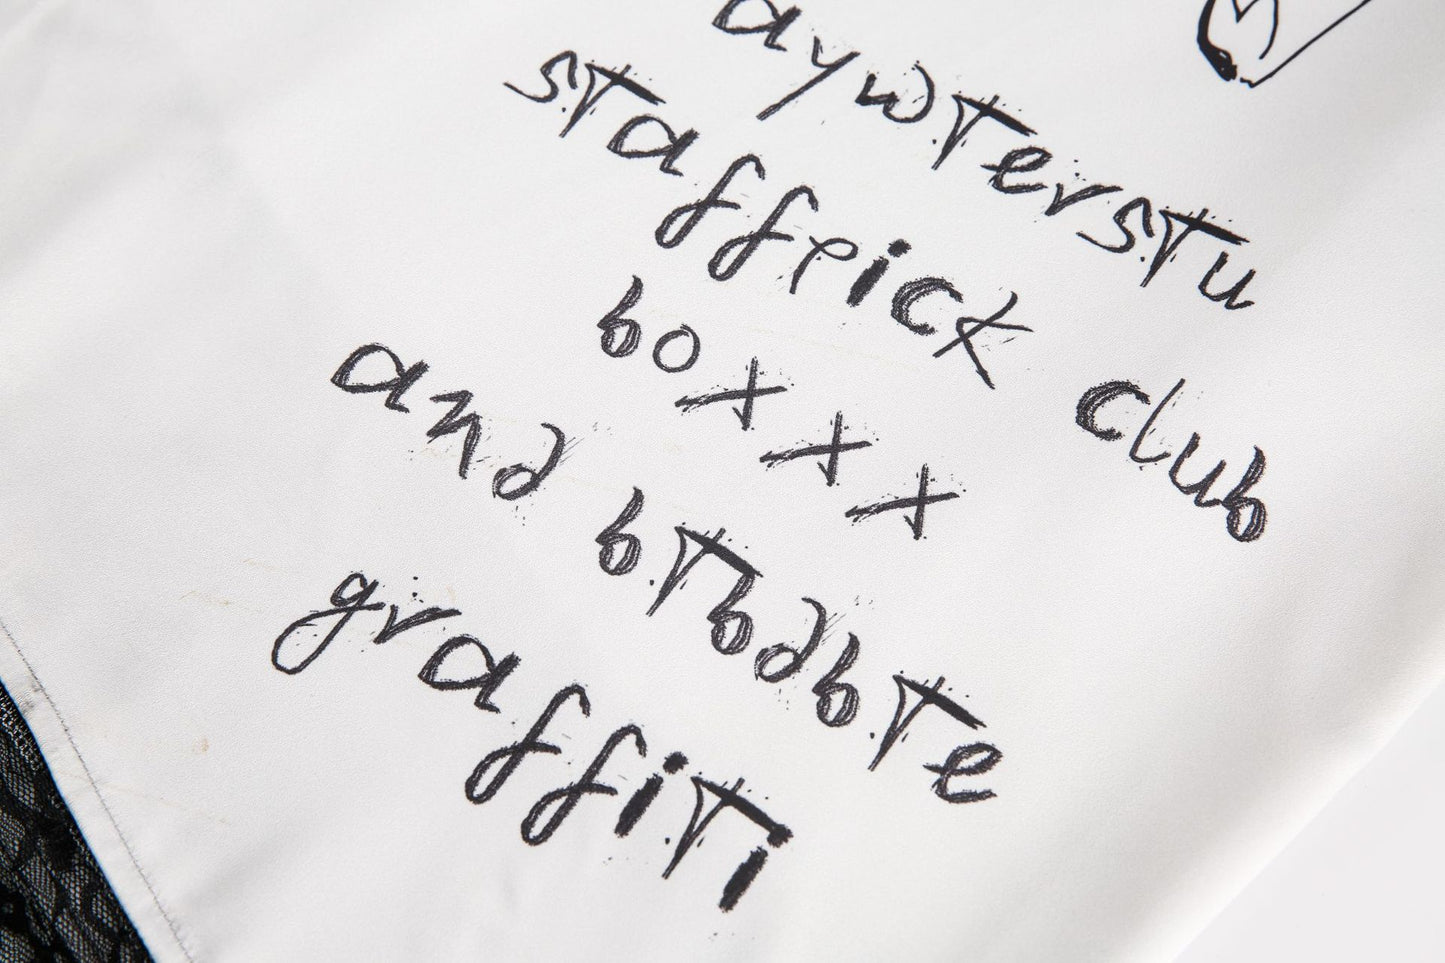 aywterstu
staffpick club
boxxx
and btbdbte
graffiti